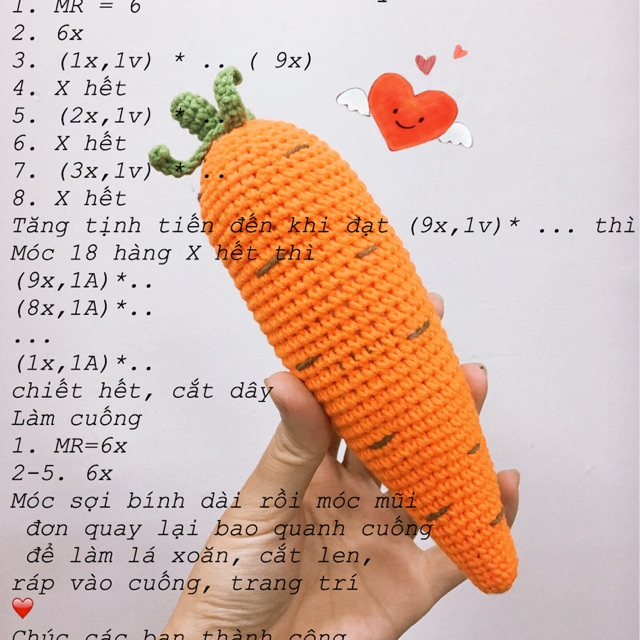 1. MR = 6
2. 6x
3. (1x,1v) * .. ( 9x)
4. X hết
5. (2x,1v) * ..
6. X hết
7. (3x,1v) * ..
8. X hết
Tăng tịnh tiến đến khi đạt (9x,1v)* ... thì
Móc 18 hàng X hết thì
(9x,1A)*..
(8x,1A)*..
...
(1x,1A)*..
chiết hết, cắt dây
Làm cuống
1. MR=6x
2-5. 6x
Móc sợi bính dài rồi móc mũi
đơn quay lại bao quanh cuống
để làm lá xoăn, cắt len,
ráp vào cuống, trang trí
❤️
Chúc các bạn thành công